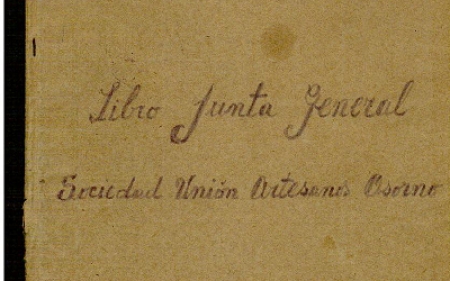 Libro Junta General
Sociedad Unión Artesanos Osorno